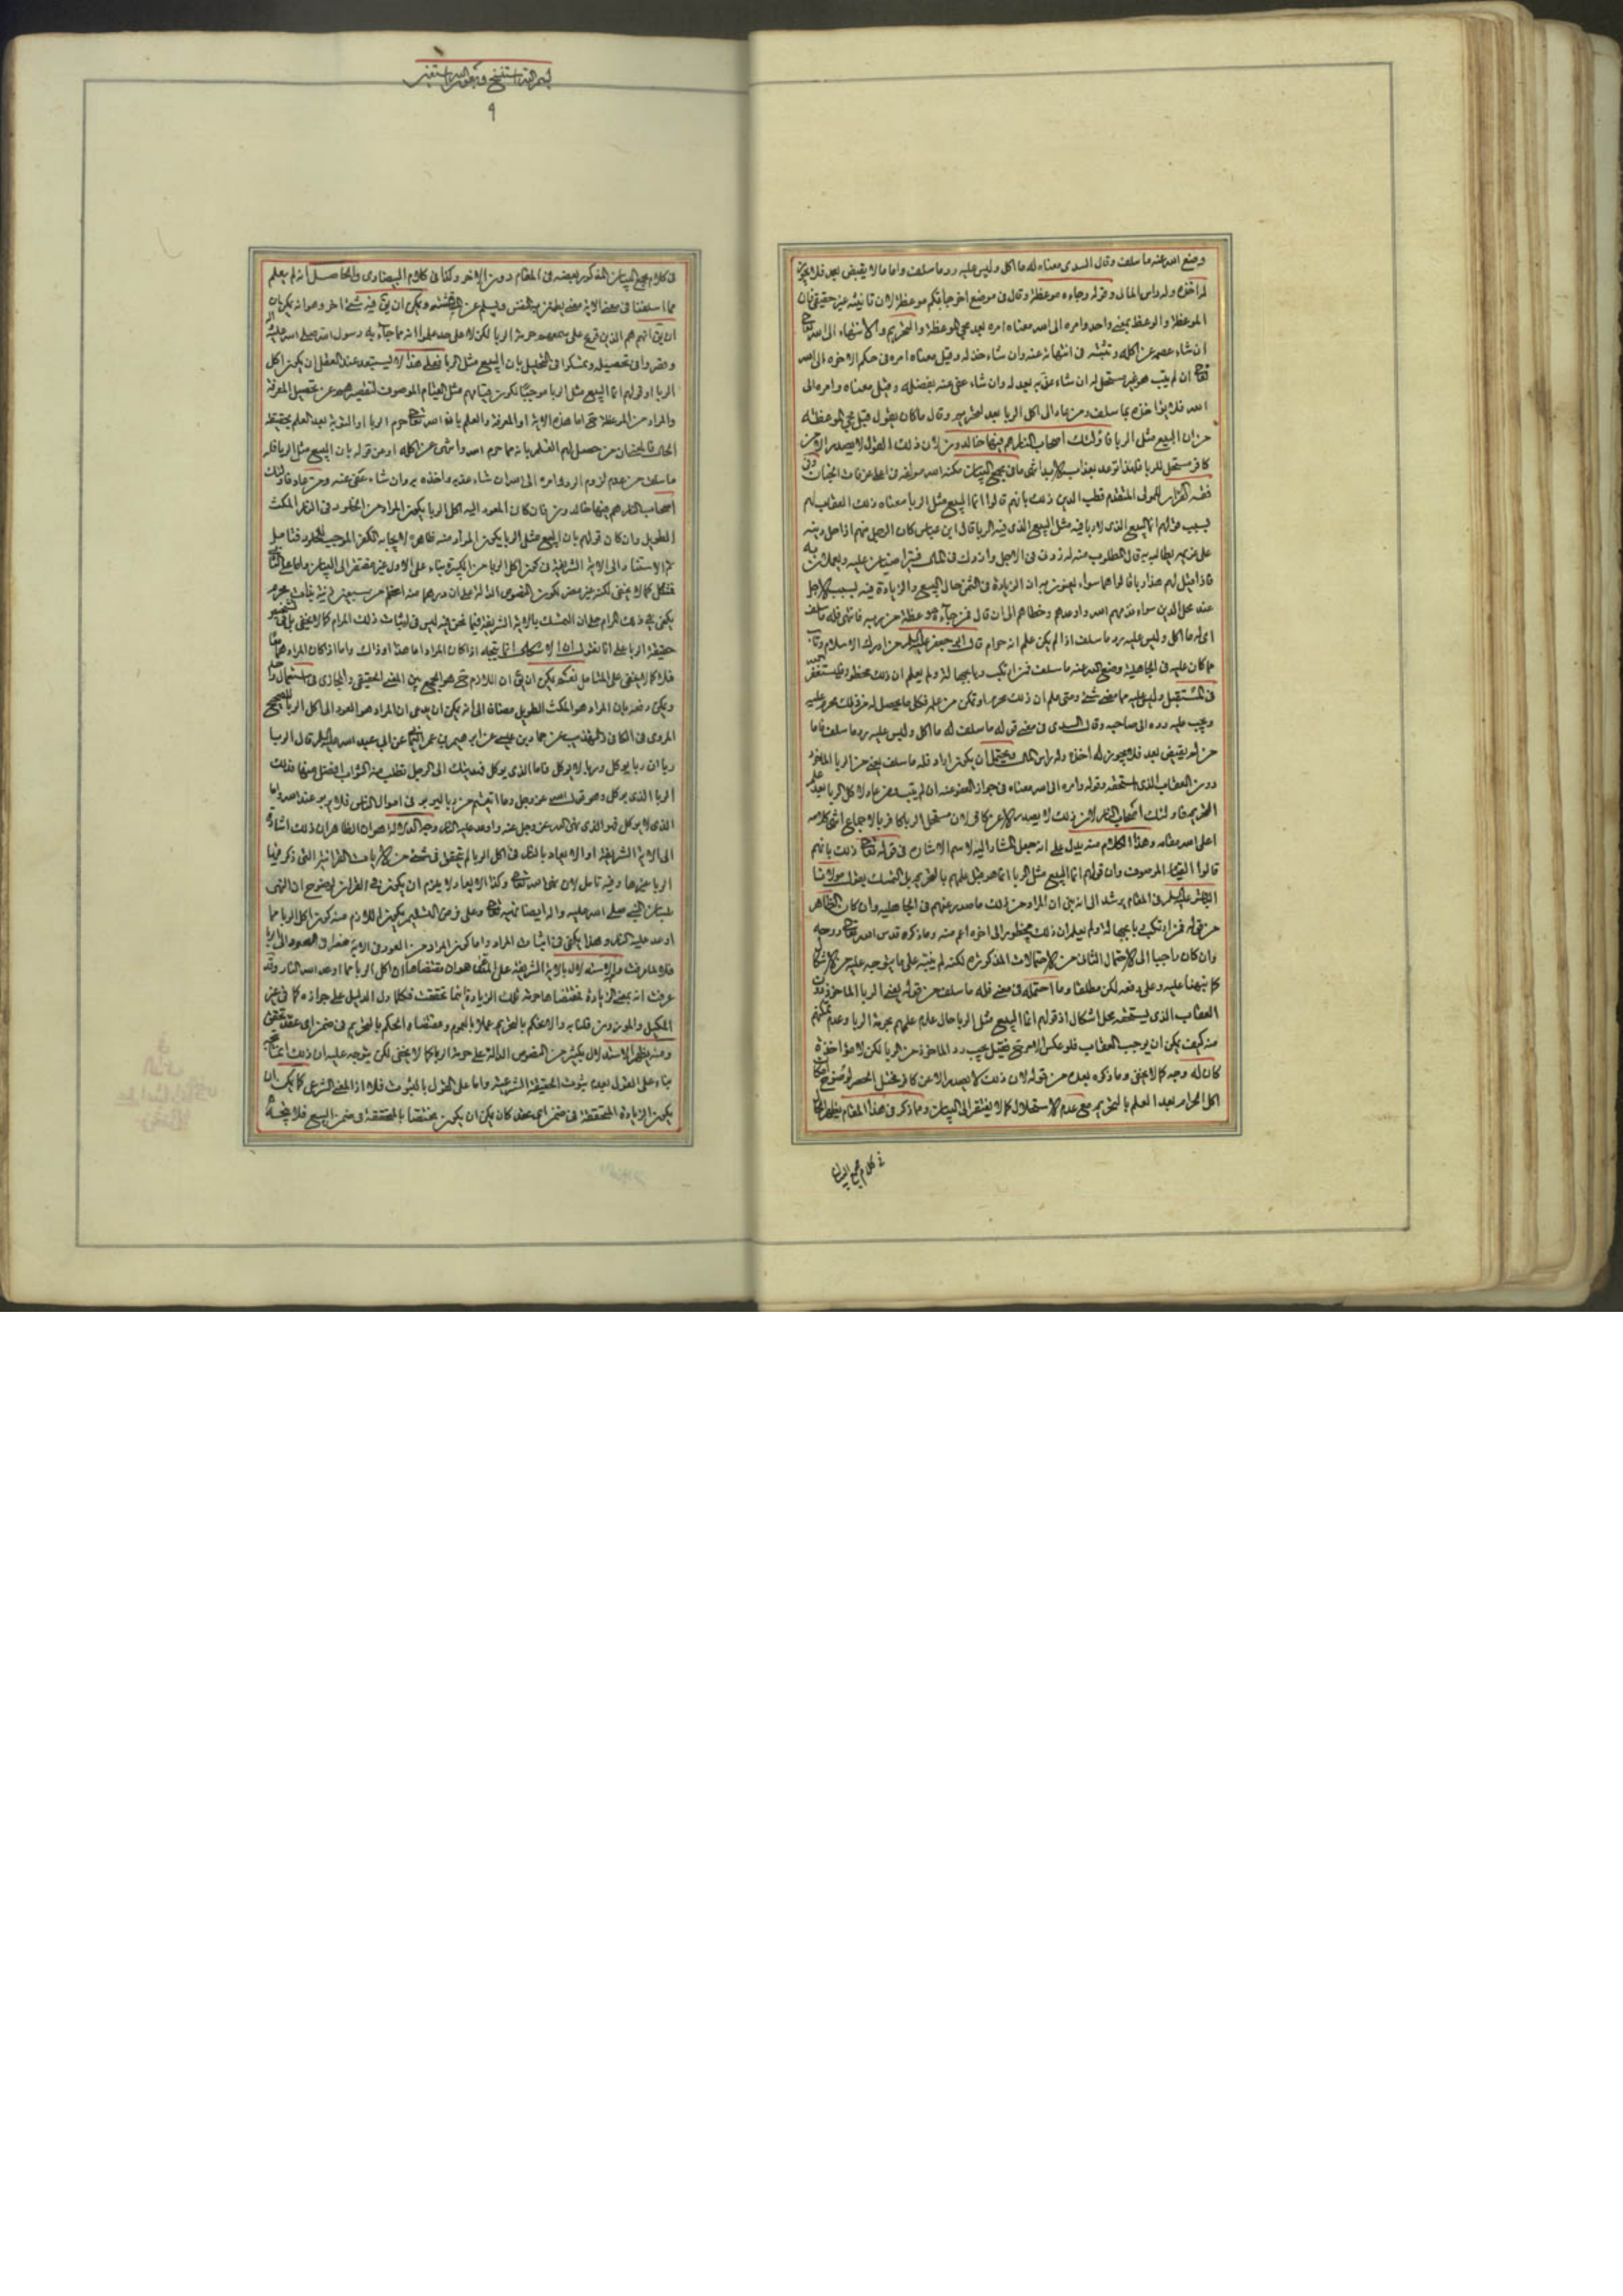 وضع الله عنه ما سلف وقال السدى معناه له ما اكل وليس عليه رد ما سلف واما ما لا يقبض بعد فلا يجوز
له اخذه وله راس المال وقوله وجاءه موعظة وقال فى موضع اخر جاءتكم موعظة لان تانيثه غير حقيقى فان
الموعظة والوعظ بمعنى واحد وامره الى الله معناه امره بعد مجئ الموعظة والتحريم والانتهاء الى الله تعالى
ان شاء عصمه عن اكله وثبته فى انتهائه عنه وان شاء خذله وقيل معناه امره فى حكم الاخرة الى الله
تعالى ان لم يتب وهو غير مستحل له ان شاء عذبه بعدله وان شاء عفى عنه بفضله وقيل معناه وامره الى
الله فلا يؤاخذه بما سلف ومن عاد الى اكل الربا بعد التحريم وقال ما كان يقول قبل مجئ الموعظة
من ان البيع مثل الربا فاولئك اصحاب النار هم فيها خالدون لان ذلك القول لا يصدر الا من
كافر مستحل للربا فلهذا توعد بعذاب الابد انتهى ما فى مجمع البيان مكنه الله مولفه فى اعلى غرفات الجنان وفى
فقه القران للمولى المتقدم قطب الدين ذلك بانهم قالوا انما البيع مثل الربا معناه ذلك العقاب لهم
بسبب قولهم انما البيع الذى لا ربا فيه مثل البيع الذى فيه الربا قال ابن عباس كان الرجل منهم اذا حل دينه
على غريمه يطالبه به قال المطلوب منه له زدنى فى الاجل وازيدك فى المال فيتراضيان عليه ويعملان به
فاذا قيل لهم هذا ربا قالوا هما سواء يعنون به ان الزيادة فى الثمن حال البيع والزيادة فيه بسبب الاجل
عند محل الدين سواء فذمهم الله واوعدهم وخطاهم الى ان قال فمن جاءه موعظة من ربه فانتهى فله ما سلف
اى له ما اكل وليس عليه رد ما سلف اذا لم يكن علم انه حرام قال ابى جعفر عليه السلام من ادرك الاسلام وتاب
مما كان عليه فى الجاهلية وضع الله عنه ما سلف فمن ارتكب ربا بجهالة ولم يعلم ان ذلك محظور فليستغفر الله
فى المستقبل وليس عليه مما مضى شئ ومتى علم ان ذلك محرم وتمكن من علمه فكلما يحصل له من ذلك محرم عليه
ويجب عليه رده الى صاحبه وقال السدى فى معنى قوله ما سلف له ما اكل وليس عليه رد ما سلف فاما
من لم يقبض بعد فلا يجوز له اخذه وله راس المال ويحتمل ان يكون اراد فله ما سلف يعنى من الربا الماخوذ
دون العقاب الذى استحقه وقوله وامره الى الله معناه فى جواز العفو عنه ان لم يتب ومن عاد لاكل الربا بعد
التحريم فاولئك اصحاب النار لان ذلك لا يصدر الا عن كافر لان مستحل الربا كافر بالاجماع انتهى كلامه
اعلى الله مقامه وهذا الكلام منه يدل على انه جعل المشار اليه لاسم الاشارة فى قوله تعالى ذلك بانهم
قالوا القيام الموصوف وان قولهم انما البيع مثل الربا انما هو قبل علمهم بالتحريم بل التمسك بقول مولانا
الباقر عليه السلم فى المقام يرشد الى انه جزم ان المراد من ذلك ما صدر عنهم فى الجاهلية وان كان الظاهر
من قوله فمن ارتكب ربا بجهالة ولم يعلم ان ذلك محظور الى اخره اعم منه وما ذكره قدس الله تعالى روحه
وان كان راجيا الى الاحتمال الثانى من الاحتمالات المذكورة لكنه لم ينبه على ما يتوجه عليه من الاشكال
كما نبهنا عليه وعلى دفعه لكن مطلقا وما احتمله فى معنى فله ما سلف من قوله يعنى الربا الماخوذ دون
العقاب الذى يستحقه محل اشكال اذ قولهم انما البيع مثل الربا حال عدم علمهم بحرمة الربا وعدم تمكنهم
منه كيف يمكن ان يوجب العقاب فلو عكس الامر فقيل يجب رد الماخوذ من الربا لكن لا مؤاخذة
كان له وجه كما لا يخفى وما ذكره بعده من قوله لان ذلك لا يصدر الا عن كافر مختل الحصر لوضوح امكان
اكل الحرام بعد العلم بالتحريم مع عدم الاستحلال كما لا يفتقر الى البيان وما ذكر فى هذا المقام يظهر الحال
فى كلام مجمع البيان
بسم الله استفتح وبعون الله استعين
٩
فى كلام مجمع البيان المذكور بعضه فى المقام دون الاخر وكذا فى كلام البيضاوى والحاصل انه لم يعلم
مما اسلفنا فى معنى الاية معنى يطمئن به النفس ويسلم عن المناقشة ويمكن ان يق فيه شئ اخر وهو انه يمكن
ان يق انهم هم الذين قرع على سمعهم حرمة الربا لكن لا على حد علموا انه مما جاء به رسول الله صلى الله عليه واله
وقصروا فى تحصيله وتمسكوا فى التحليل بان البيع مثل الربا فعلى هذا لا يستبعد عند العقل ان يكون اكل
الربا او قولهم انما البيع مثل الربا موجبا لكون قيامهم مثل القيام الموصوف لتقصيرهم عن تحصيل المعرفة
والمراد من الموعظة اما هذه الاية او المعرفة والعلم بان الله تعالى حرم الربا او التوبة بعد العلم بحقيقة
الحال فالمعنى ان من حصل لهم العلم بانه مما حرم الله وانتهى عن اكله او عن قوله بان البيع مثل الربا فله
ما سلف من عدم لزوم الرد وامره الى الله ان شاء عذبه واخذه به وان شاء عفى عنه ومن عاد فاولئك
اصحاب النار هم فيها خالدون فان كان المعود اليه اكل الربا يكون المراد من الخلود فى النار المكث
الطويل وان كان قولهم بان البيع مثل الربا يكون المراد منه ظاهره لايجابه الكفر الموجب للخلود فتامل
ثم الاستناد الى الاية الشريفة فى كون اكل الربا من الكبيرة بناء على الاول غير مفتقر الى البيان واما على الثانى
فمشكل كما لا يخفى لكنه غير مضر لكون النصوص الدالة على ان درهما منه اعظم من سبعين زنية بذات محرم
يكفى فى ذلك المرام على ان التمسك بالاية الشريفة فيما نحن فيه ليس فى اثبات ذلك المرام كما لا يخفى بل فى تفسير
حقيقة الربا على انا نقول ان الاشكال انما يتجه اذا كان المراد اما هذا او ذاك واما اذا كان المراد هما معا
فلا كما لا يخفى على المتامل نعم يمكن ان يق ان اللازم ح هو الجمع بين المعنى الحقيقى والمجازى فى استعمال واحد
ويمكن دفعه بان المراد هو المكث الطويل مضافا الى انه يمكن ان يدعى ان المراد هو العود الى اكل الربا للصحيح
المروى فى الكافى والتهذيب عن حماد بن عيسى عن ابرهيم بن عمر اليمانى عن ابى عبد الله عليه السلم قال الربا
ربا ان ربا يوكل وربا لا يوكل فاما الذى يوكل فهديتك الى الرجل تطلب منه الثواب افضل منها فذلك
الربا الذى يوكل وهو قول الله عز وجل وما اتيتم من ربا ليربو فى اموال الناس فلا يربو عند الله واما
الذى لا يوكل فهو الذى نهى الله عز وجل عنه واوعد عليه النار وجه الدلالة هو ان الظاهر ان ذلك اشارة
الى الاية الشريفة اذ الايعاد بالنار فى اكل الربا لم يتحقق فى شئ من الايات القرانية التى ذكر فيها
الربا غيرها وفيه تامل لان نهى الله تعالى وكذا الايعاد لا يلزم ان يكون فى القران لوضوح ان النهى
بلسان النبى صلى الله عليه واله ايضا نهيه تعالى وعلى فرض التسليم يكون اللازم منه كون اكل الربا مما
اوعد عليه النار وهذا يكفى فى اثبات المراد واما كون المراد من العود فى الاية هو العود الى الربا
فلا عرفت هذا فالاستدلال بالاية الشريفة على المدعى هو ان مقتضاها ان اكل الربا مما اوعد الله النار وقد
عرفت انه بمعنى الزيادة فمقتضاها حرمة تلك الزيادة اينما تحققت فكلما دل الدليل على جوازه كما فى غير
المكيل والموزون قلنا به والا نحكم بالتحريم عملا بالعموم ومقتضاه الحكم بالتحريم فى ضمن اى عقد تحقق
ومنه يظهر الاستدلال بكثير من النصوص الدالة على حرمة الربا كما لا يخفى لكن يتوجه عليه ان ذلك انما يتجه
بناء على القول بعدم ثبوت الحقيقة الشرعية واما على القول بالثبوت فلا اذ المعنى الشرعى كما يمكن ان
يكون الزيادة المتحققة فى ضمن اى عقد كان يمكن ان يكون مختصا بالمتحققة فى ضمن البيع فلا يتجه